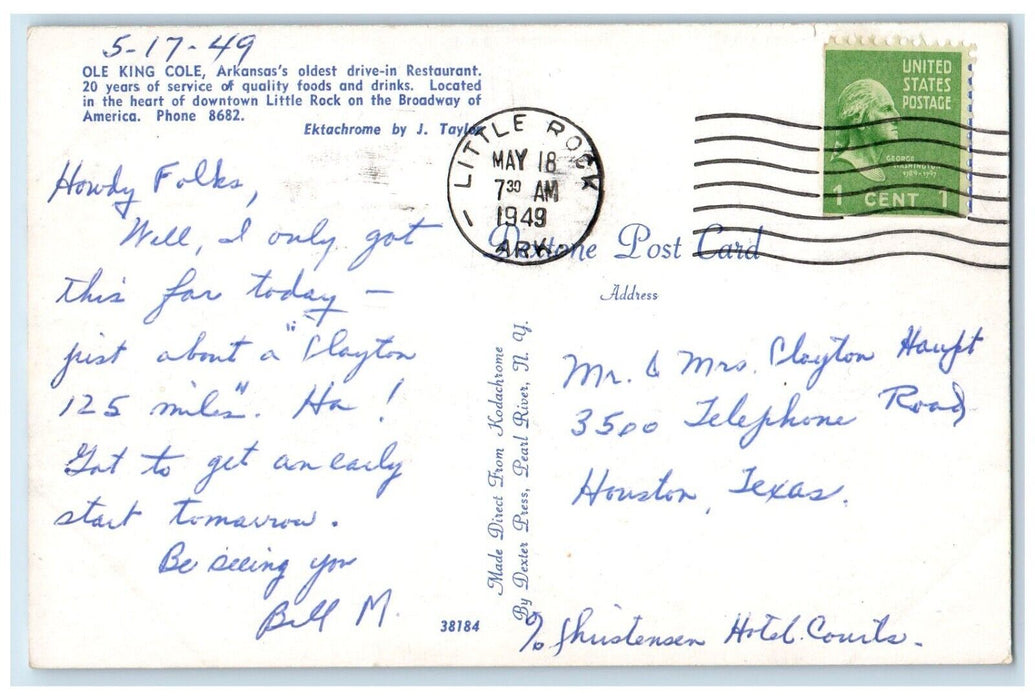 5-17-49
OLE KING COLE, Arkansas's oldest drive-in Restaurant.
20 years of service of quality foods and drinks. Located
in the heart of downtown Little Rock on the Broadway of
America. Phone 8682.
Ektachrome by J. Taylor
Howdy Folks,
Well, I only got
this far today —
just about a "Clayton
125 miles". Ha!
Got to get an early
start tomarrow.
Be seeing you
Bill M.
38184
LITTLE ROCK
MAY 18
7 30 AM
1949
ARK.
UNITED
STATES
POSTAGE
GEORGE
WASHINGTON
1789-1797
1 CENT 1
Dextone Post Card
Address
Made Direct From Kodachrome
By Dexter Press, Pearl River, N. Y.
Mr. & Mrs. Clayton Haupt
3500 Telephone Road
Houston, Texas.
c/o Christensen Hotel Courts.